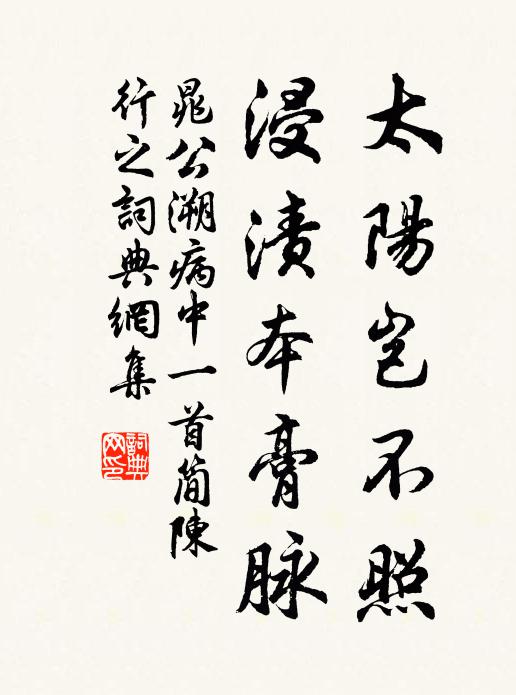 太陽岂不照
浸漬本膏脉
晁公溯病中一首简陳
行之詞典網集
詞典网印